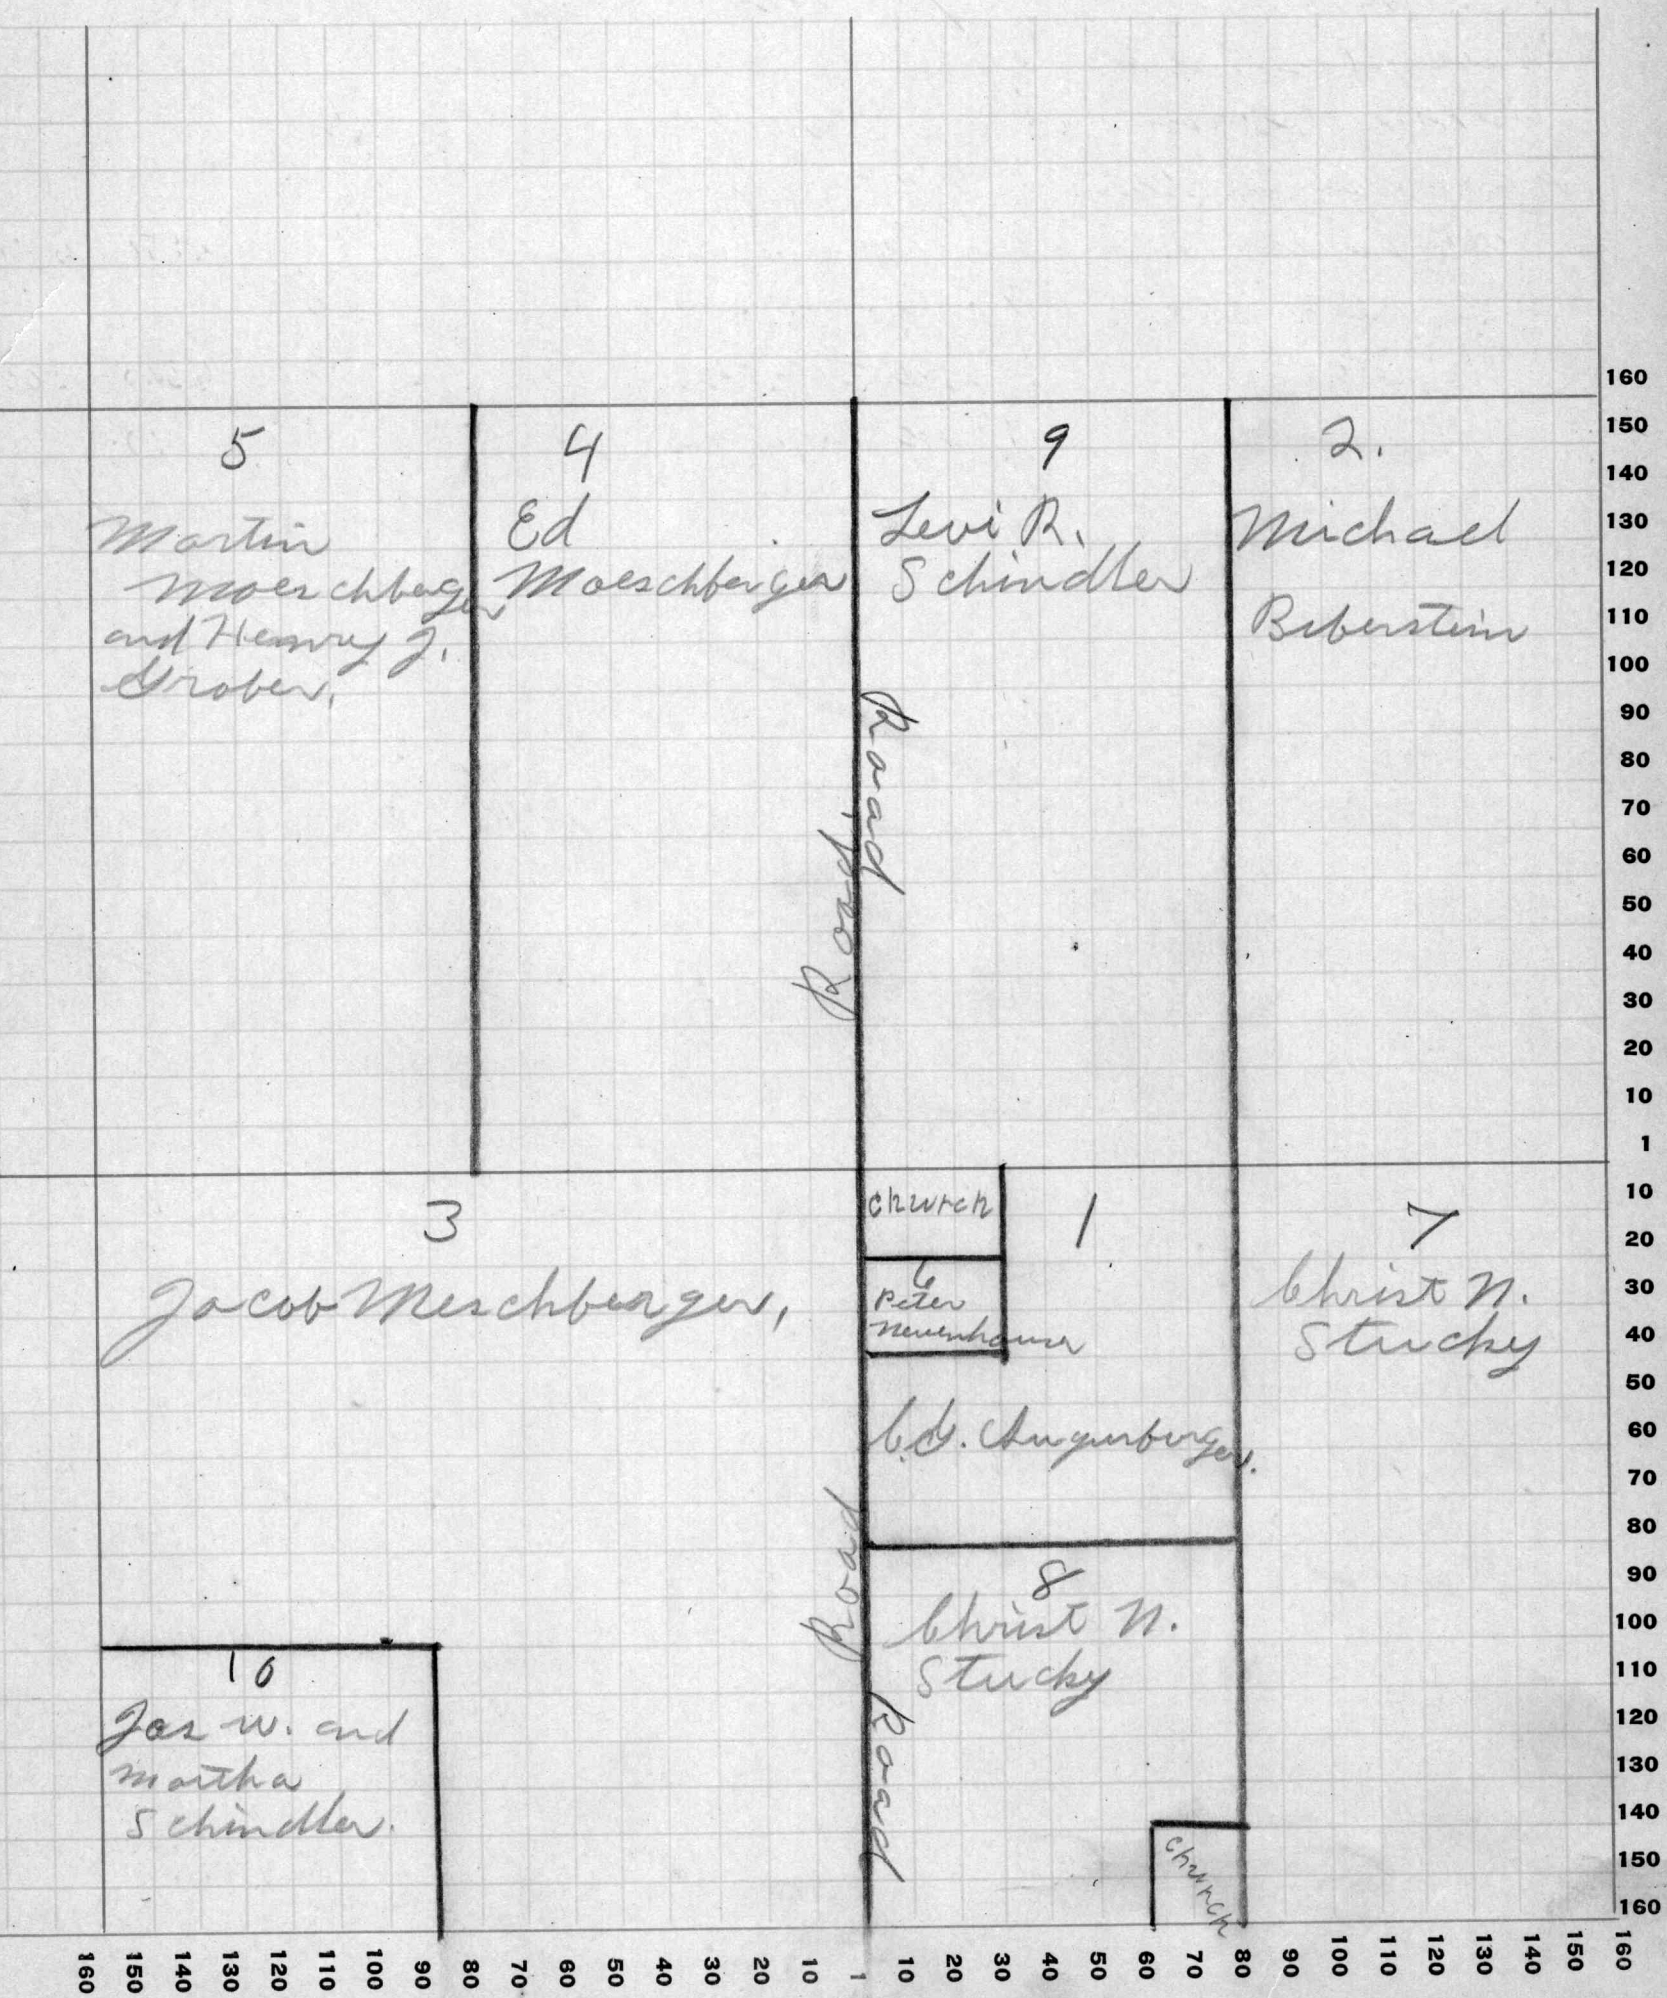 5
Martin
Moeschberger
and Henry J.
Graber.
4
Ed
Moeschberger
9
Levi R.
Schindler
2.
Michael
Biberstein
Road
Road
3
Jacob Meschberger,
Church
6
Peter
Neuenhauser
1
C.G. Augsburger.
7
Christ N.
Stucky
8
Christ N.
Stucky
Road
Road
Church
10
Jos W. and
Martha
Schindler.
160
150
140
130
120
110
100
90
80
70
60
50
40
30
20
10
1
10
20
30
40
50
60
70
80
90
100
110
120
130
140
150
160
160 150 140 130 120 110 100 90 80 70 60 50 40 30 20 10 1 10 20 30 40 50 60 70 80 90 100 110 120 130 140 150 160